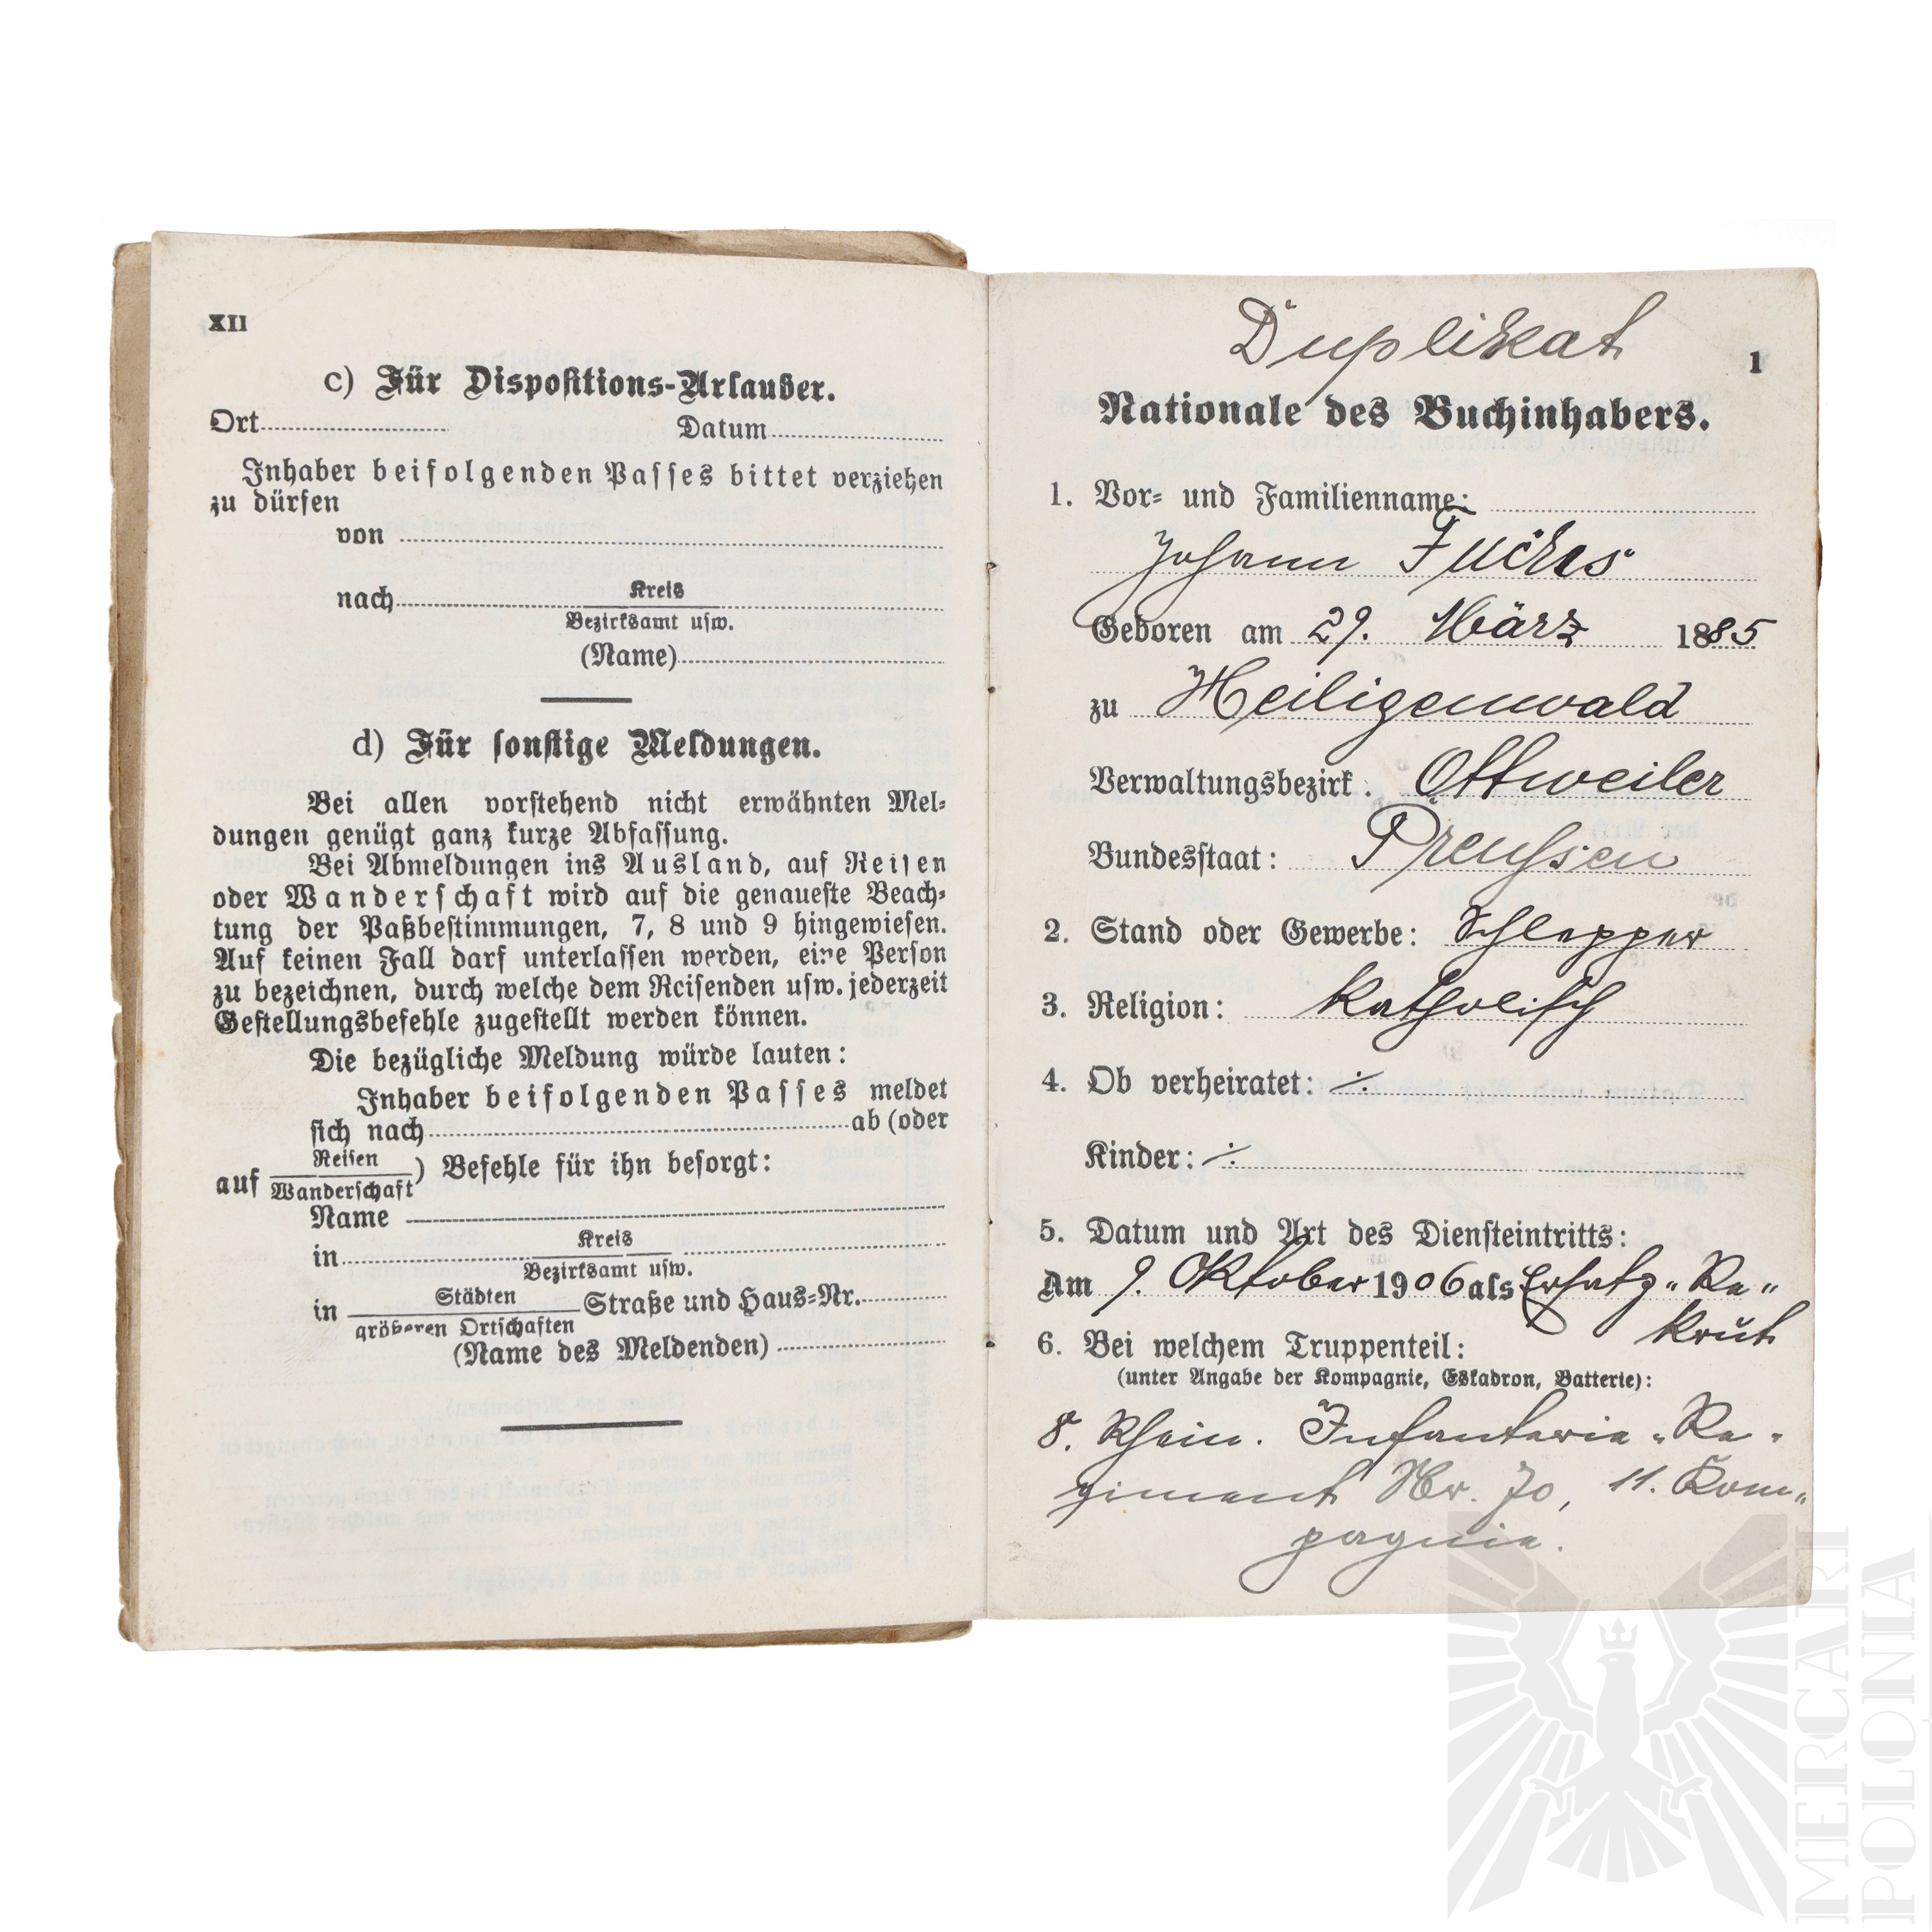 XII
c) Für Dispositions-Urlauber.
Ort Datum
Inhaber beifolgenden Passes bittet verziehen
zu dürfen
von
nach Kreis
Bezirksamt usw.
(Name)
d) Für sonstige Meldungen.
Bei allen vorstehend nicht erwähnten Mel-
dungen genügt ganz kurze Abfassung.
Bei Abmeldungen ins Ausland, auf Reisen
oder Wanderschaft wird auf die genaueste Beach-
tung der Paßbestimmungen, 7, 8 und 9 hingewiesen.
Auf keinen Fall darf unterlassen werden, eine Person
zu bezeichnen, durch welche dem Reisenden usw. jederzeit
Gestellungsbefehle zugestellt werden können.
Die bezügliche Meldung würde lauten:
Inhaber beifolgenden Passes meldet
sich nach ab (oder
auf Reisen
Wanderschaft) Befehle für ihn besorgt:
Name
in Kreis
Bezirksamt usw.
in Städten
größeren Ortschaften Straße und Haus-Nr.
(Name des Meldenden)
Duplikat
1
Nationale des Buchinhabers.
1. Vor- und Familienname:
Johann Fuckes
Geboren am 29. März 1885
zu Heiligenwald
Verwaltungsbezirk: Ottweiler
Bundesstaat: Preussen
2. Stand oder Gewerbe: Schlepper
3. Religion: Katholisch
4. Ob verheiratet: ·/.
Kinder: ·/.
5. Datum und Art des Diensteintritts:
Am 9. Oktober 1906 als Ersatz-Re-
krut
6. Bei welchem Truppenteil:
(unter Angabe der Kompagnie, Eskadron, Batterie):
8. Rhein. Infanterie-Re-
giment Nr. 70, 11. Kom-
pagnie.
MERCARI
POLONIA